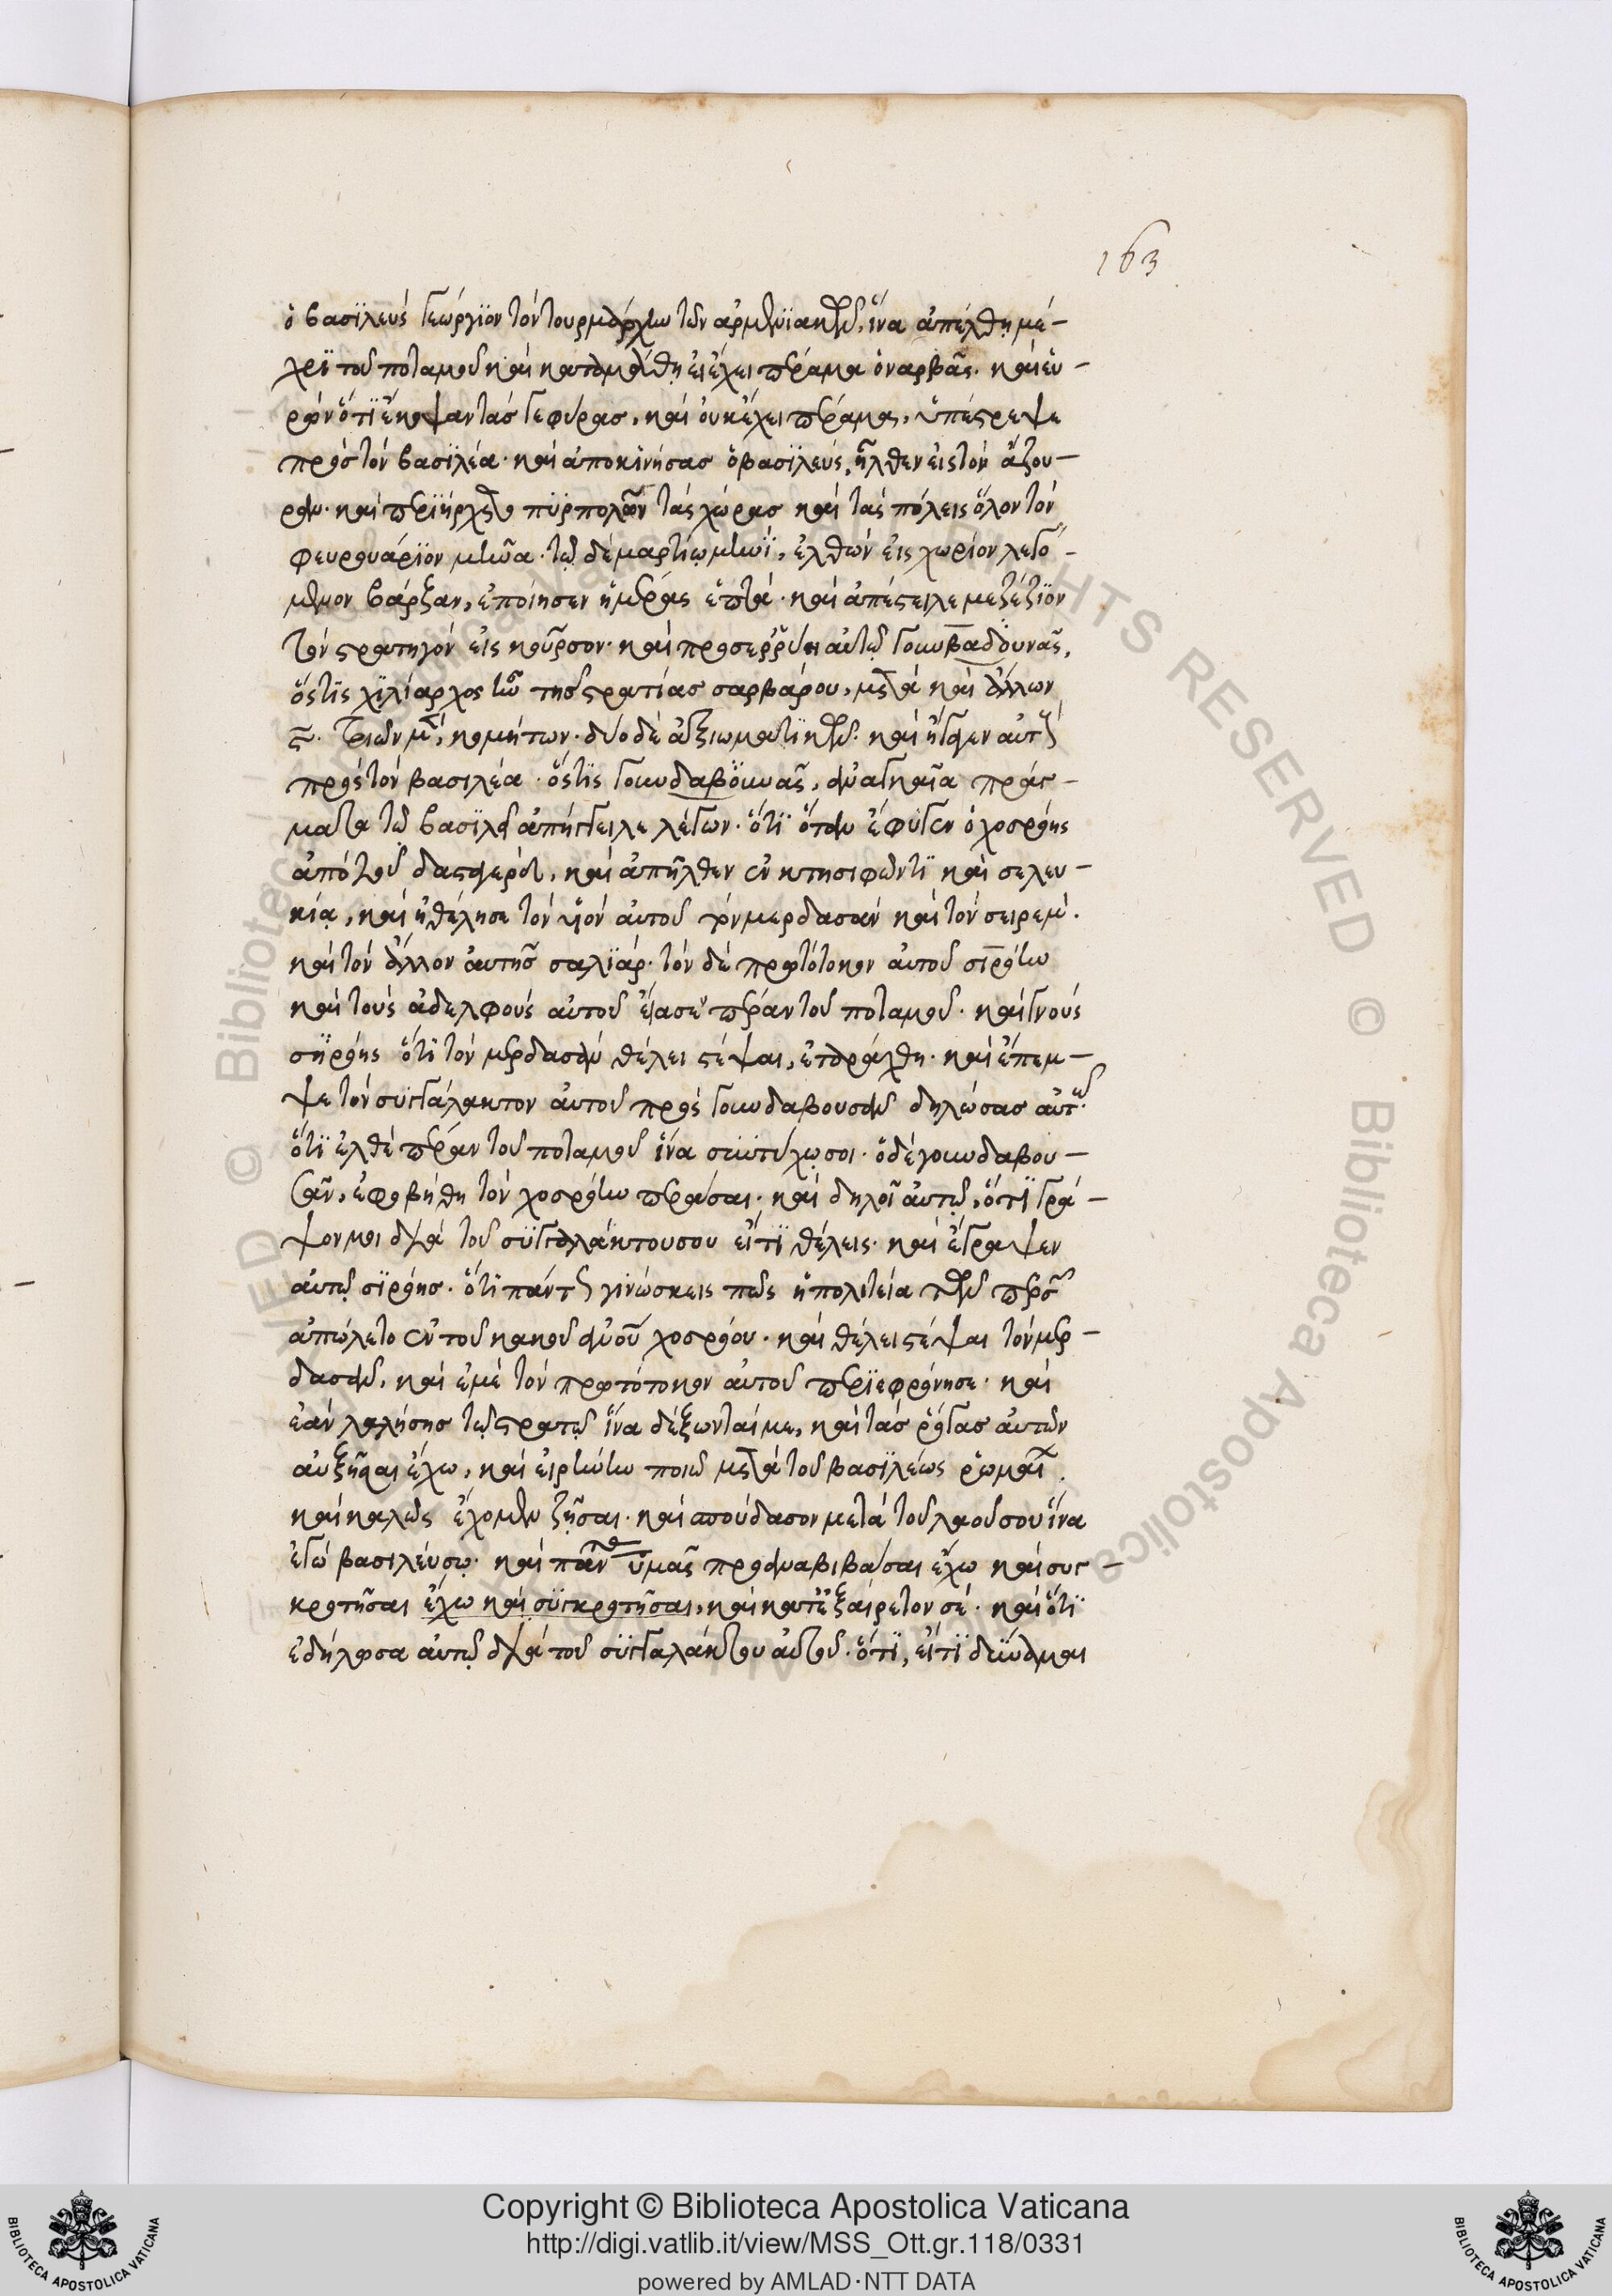 163
ὁ βασϊλεὺς Γεώργϊον τὸν τουρμάρχην τῶν ἀρμενϊακῶν, ἵνα ἀπέλθη μέ-
χρϊ τοῦ ποταμοῦ καὶ καταμάθη εἰ ἔχει πέραμα ὁ ναρβᾶς. καὶ εὑ-
ρὼν ὅτϊ ἔκοψαν τὰς γεφύρας, καὶ οὐκ ἔχει πέραμα, ὑπέστρεψε
πρὸς τὸν βασϊλέα. καὶ ἀποκϊνήσας ὁ βασϊλεὺς, ἦλθεν εἰς τὸν ϊάζου-
ραν. καὶ περϊήρχετο πϋρπολῶν τὰς χώρας καὶ τὰς πόλεις ὅλον τὸν
φευρουάρϊον μῆνα. τῷ δὲ μαρτίῳ μηνῒ, ἐλθὼν εἰς χωρίον λεγό-
μενον βάρξαν, ἐποίησεν ἡμέρας ἑπτά. καὶ ἀπέστειλε μεζέζϊον
τὸν στρατηγὸν εἰς κοῦρσον. καὶ προσερρύη αὐτῷ γουνβαδδουνᾶς,
ὅστϊς χϊλίαρχος ἦν τῆς στρατίας σαρβάρου, μετὰ καὶ ἄλλων
κομήτων. δύο δὲ ἀξιωματϊκῶν. καὶ ἤγαγεν αὐτοὺς
πρὸς τὸν βασιλέα. ὅστϊς γουνδαβουνᾶς, ἀναγκαῖα πράγ-
ματα τῷ βασϊλεῖ ἀπήγγειλε λέγων. ὅτϊ ὅταν ἔφϋγεν ὁ χοσρόης
ἀπὸ τοῦ δασταγερδ, καὶ ἀπῆλθεν ἐν κτησιφῶντϊ καὶ σελευ-
κίᾳ, καὶ ἠθέλησε τὸν υἱὸν αὐτοῦ τὸν μερδασὰν καὶ τὸν σειρέμ.
καὶ τὸν ἄλλον αὐτῆς σαλϊάρ. τὸν δὲ πρωτότοκον αὐτοῦ σϊρόην
καὶ τοὺς ἀδελφοὺς αὐτοῦ εἴασε πέραν τοῦ ποταμοῦ. καὶ γνοὺς
σϊρόης ὅτϊ τὸν μερδασὰν θέλει στέψαι, ἐταράχθη. καὶ ἔπεμ-
ψε τὸν συγγάλακτον αὐτοῦ πρὸς γουνδαβουσὰν δηλώσας αὐτῷ.
ὅτϊ ἐλθὲ πέραν τοῦ ποταμοῦ ἵνα συντύχω σοι. ὁ δὲ γουνδαβου-
σᾶν, ἐφοβήθη τὸν χοσρόην περᾶσαι. καὶ δηλοῖ αὐτῷ, ὅτϊ γρά-
ψον μοι διὰ τοῦ συγγαλάκτου σου εἴ τϊ θέλεις. καὶ ἔγραψεν
αὐτῷ σϊρόης. ὅτϊ πάντως γϊνώσκεις πῶς ἡ πολιτεία τῶν περσῶν
ἀπώλετο ἐκ τοῦ κακοῦ ἀνθρώπου χοσρόου. καὶ θέλει στέψαι τὸν μερ-
δασὰν, καὶ ἐμὲ τὸν πρωτότοκον αὐτοῦ περϊεφρόνησε. καὶ
ἐὰν λαλήσῃς τῷ στρατῷ ἵνα δέξωνταί με, καὶ τὰς ῥόγας αὐτῶν
αὐξῆσαι ἔχω, καὶ εἰρήνην ποιῶ μετὰ τοῦ βασϊλέως ῥωμαίων.
καὶ καλῶς ἔχομεν ζῆσαι. καὶ σπούδασον μετὰ τοῦ λαοῦ σου ἵνα
ἐγὼ βασιλεύσω. καὶ πάντας ὑμᾶς προαναβιβάσαι ἔχω καὶ συγ-
κροτῆσαι ἔχω καὶ συγκροτῆσαι, καὶ κατ' ἐξαίρετον σέ. καὶ ὅτϊ
ἐδήλωσα αὐτῷ διὰ τοῦ συγγαλάκτου αὐτοῦ. ὅτϊ, εἴ τϊ δύναμαι
Copyright © Biblioteca Apostolica Vaticana
http://digi.vatlib.it/view/MSS_Ott.gr.118/0331
powered by AMLAD·NTT DATA